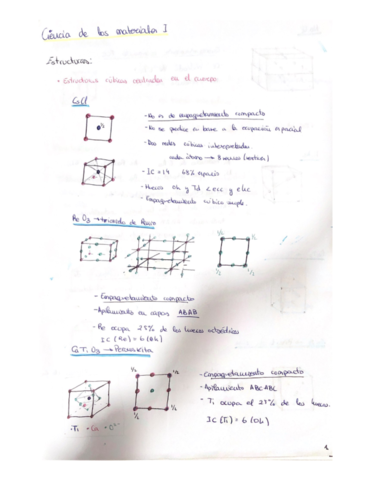 Ciencia de los materiales I
Estructuras:
• Estructura cúbica centrada en el cuerpo
CsCl
- No es de empaquetamiento compacto
- No se produce en base a la ocupación espacial
- Dos redes cúbicas interpenetradas
cada átomo → 8 vecinos (vértices)
- IC = 14 68% espacio
- Huecos Oh y Td < ccc y ehc
- Empaquetamiento cúbico simple.
Re O3 → trióxido de Renio
1/2
- Empaquetamiento compacto
- Apilamiento en capas ABAB
- Re ocupa 25% de los huecos octaédricos
IC (Re) = 6 (Oh)
Ca Ti O3 → Perovskita
1/2
1/2
1/2
- Empaquetamiento compacto
- Apilamiento ABCABC
- Ti ocupa el 25% de los huecos.
IC (Ti) = 6 (Oh)
1